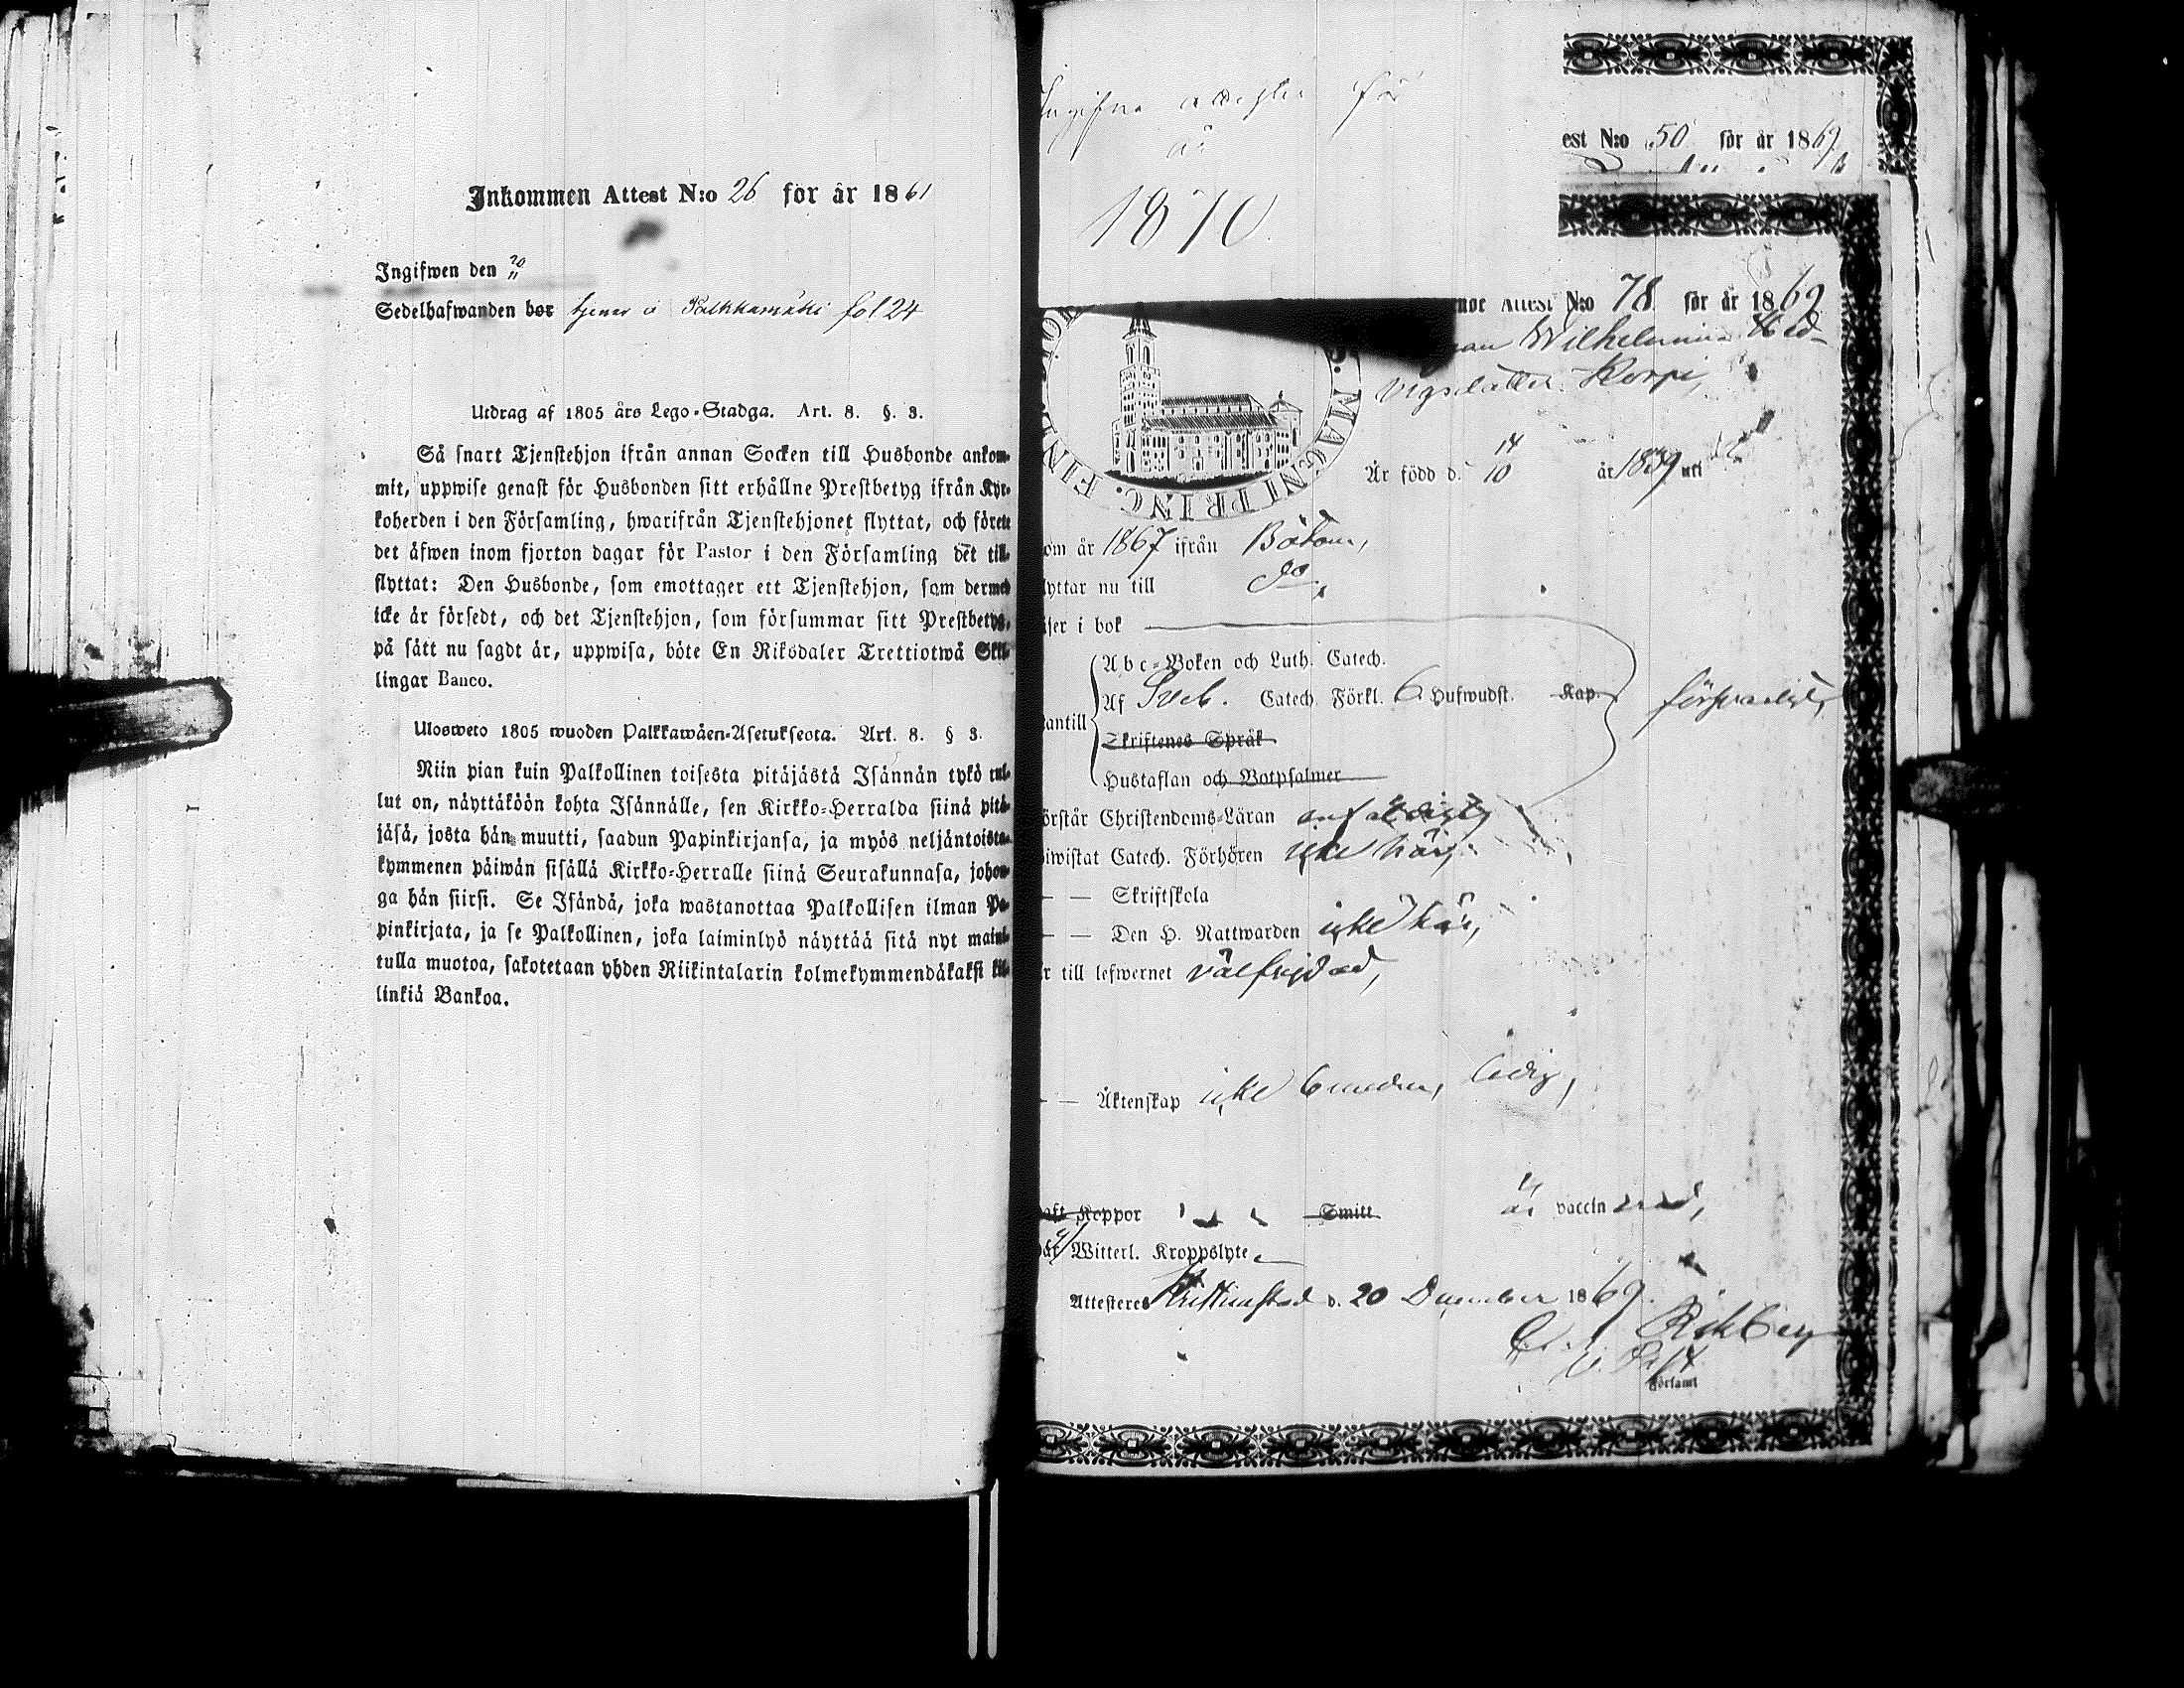 Inkommen Attest N:o 26 för år 1861
Ingifwen den 20/11
Sedelhafwanden bor tjenar å fol 24
Utdrag af 1805 års Lego-Stadga. Art. 8. §. 3.
Så snart Tjenstehjon ifrån annan Socken till Husbonde ankom-
mit, uppwise genast för Husbonden sitt erhållne Prestbetyg ifrån Kyr-
koherden i den Församling, hwarifrån Tjenstehjonet flyttat, och förete
det äfwen inom fjorton dagar för Pastor i den Församling det till-
flyttat: Den Husbonde, som emottager ett Tjenstehjon, som dermed
icke är försedt, och det Tjenstehjon, som försummar sitt Prestbetyg,
på sätt nu sagdt är, uppwisa, böte En Riksdaler Trettiotwå Skil-
lingar Banco.
Ulosweto 1805 wuoden Palkkawäen-Asetuksesta. Art. 8. § 3.
Niin pian kuin Palkollinen toisesta pitäjästä Isännän tykö tul-
lut on, näyttäköön kohta Isännälle, sen Kirkko-Herralda siinä pitä-
jäsä, josta hän muutti, saadun Papinkirjansa, ja myös neljäntoista-
kymmenen päiwän sisällä Kirkko-Herralle siinä Seurakunnasa, johon-
ga hän siirsi. Se Isändä, joka wastanottaa Palkollisen ilman Pa-
pinkirjata, ja se Palkollinen, joka laiminlyö näyttää sitä nyt maini-
tulla muotoa, sakotetaan yhden Riikintalarin kolmekymmendäkaksi kil-
linkiä Bankoa.
Ingifna attester för
år
1870
est N:o 50 för år 1869
Attest N:o 78 för år 1869
Wilhelmina Hed-
vigsdotter Korpi,
MAGNI PRINC. FINL.
Är född d. 14/10 år 1839 uti
om år 1867 ifrån Bötom,
lyttar nu till do,
iser i bok
Abc-Boken och Luth. Catech.
Af Sveb. Catech. Förkl. 6 Hufwudst. Kap. försvarligt,
antill
Skriftenes Språk
Hustaflan och Botpsalmer
örstår Christendoms-Läran
biwistat Catech. Förhören icke här,
— — Skriftskola
— — Den H. Nattwarden icke här,
r till lefwernet välfrejdad,
— Äktenskap icke bunden, ledig,
aft Koppor Smitt är vaccinerad,
Witterl. Kroppslyte
Attesteres Kristinestad d. 20 December 1869.
Församl